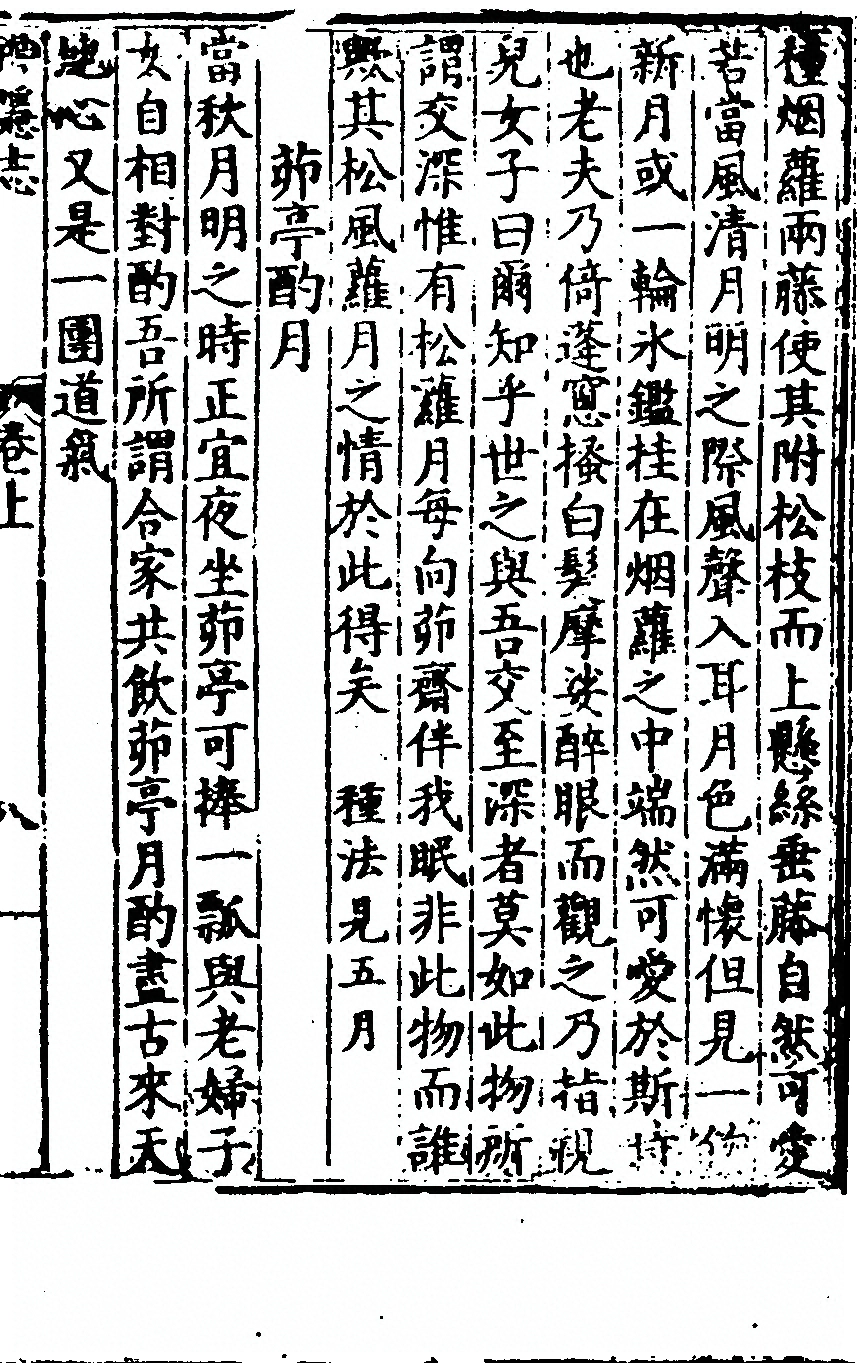 種烟蘿兩藤使其附松枝而上懸絲垂藤自然可愛
若當風清月明之際風聲入耳月色滿懷但見一鈎
新月或一輪氷鑑挂在烟蘿之中端然可愛於斯時
也老夫乃倚蓬窻搔白髮摩娑醉眼而觀之乃指視
兒女子曰爾知乎世之與吾交至深者莫如此物所
謂交深惟有松蘿月每向茆齋伴我眠非此物而誰
歟其松風蘿月之情於此得矣　種法見五月
茆亭酌月
當秋月明之時正宜夜坐茆亭可捧一瓢與老婦子
女自相對酌吾所謂合家共飲茆亭月酌盡古來天
地心又是一團道氣
隱志
卷上
八